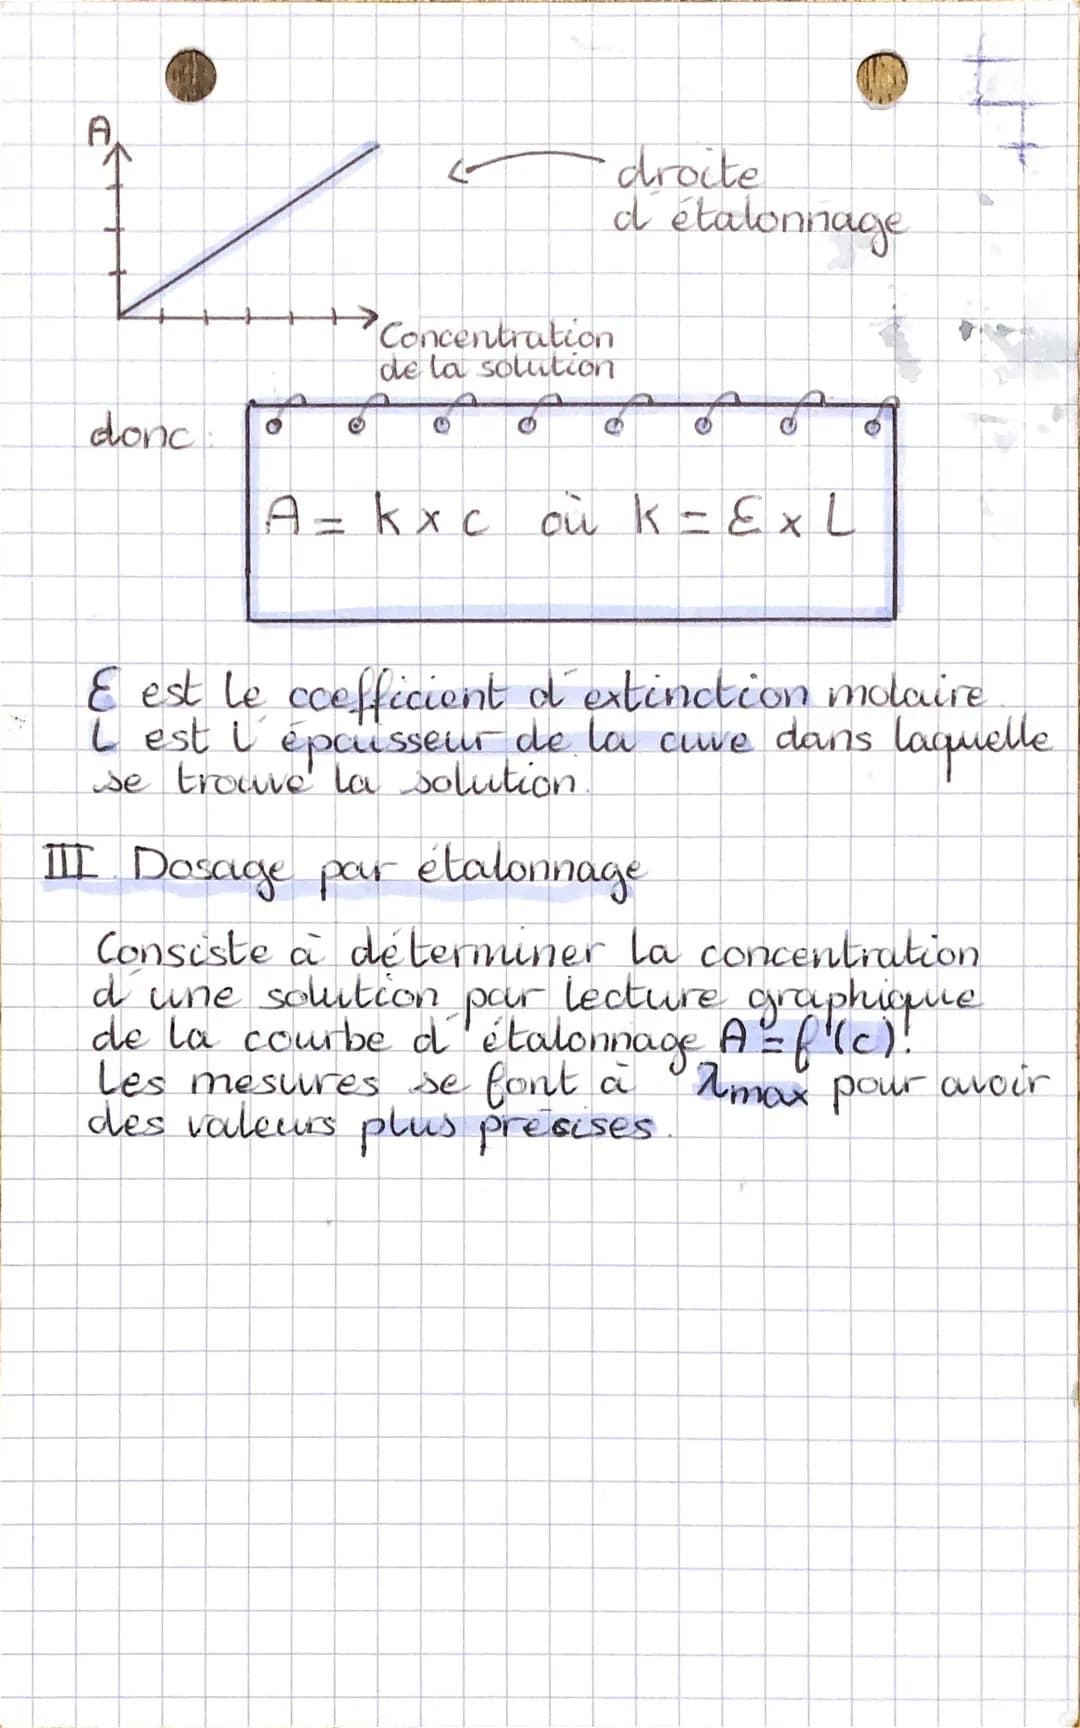 A
droite
d'étalonnage
Concentration
de la solution
donc :
A = k x c où k = ε x L
ε est le coefficient d'extinction molaire.
L est l'épaisseur de la cuve dans laquelle
se trouve la solution.
III. Dosage par étalonnage
Consiste à déterminer la concentration
d'une solution par lecture graphique
de la courbe d'étalonnage A = f(c).
Les mesures se font à λmax pour avoir
des valeurs plus présises.